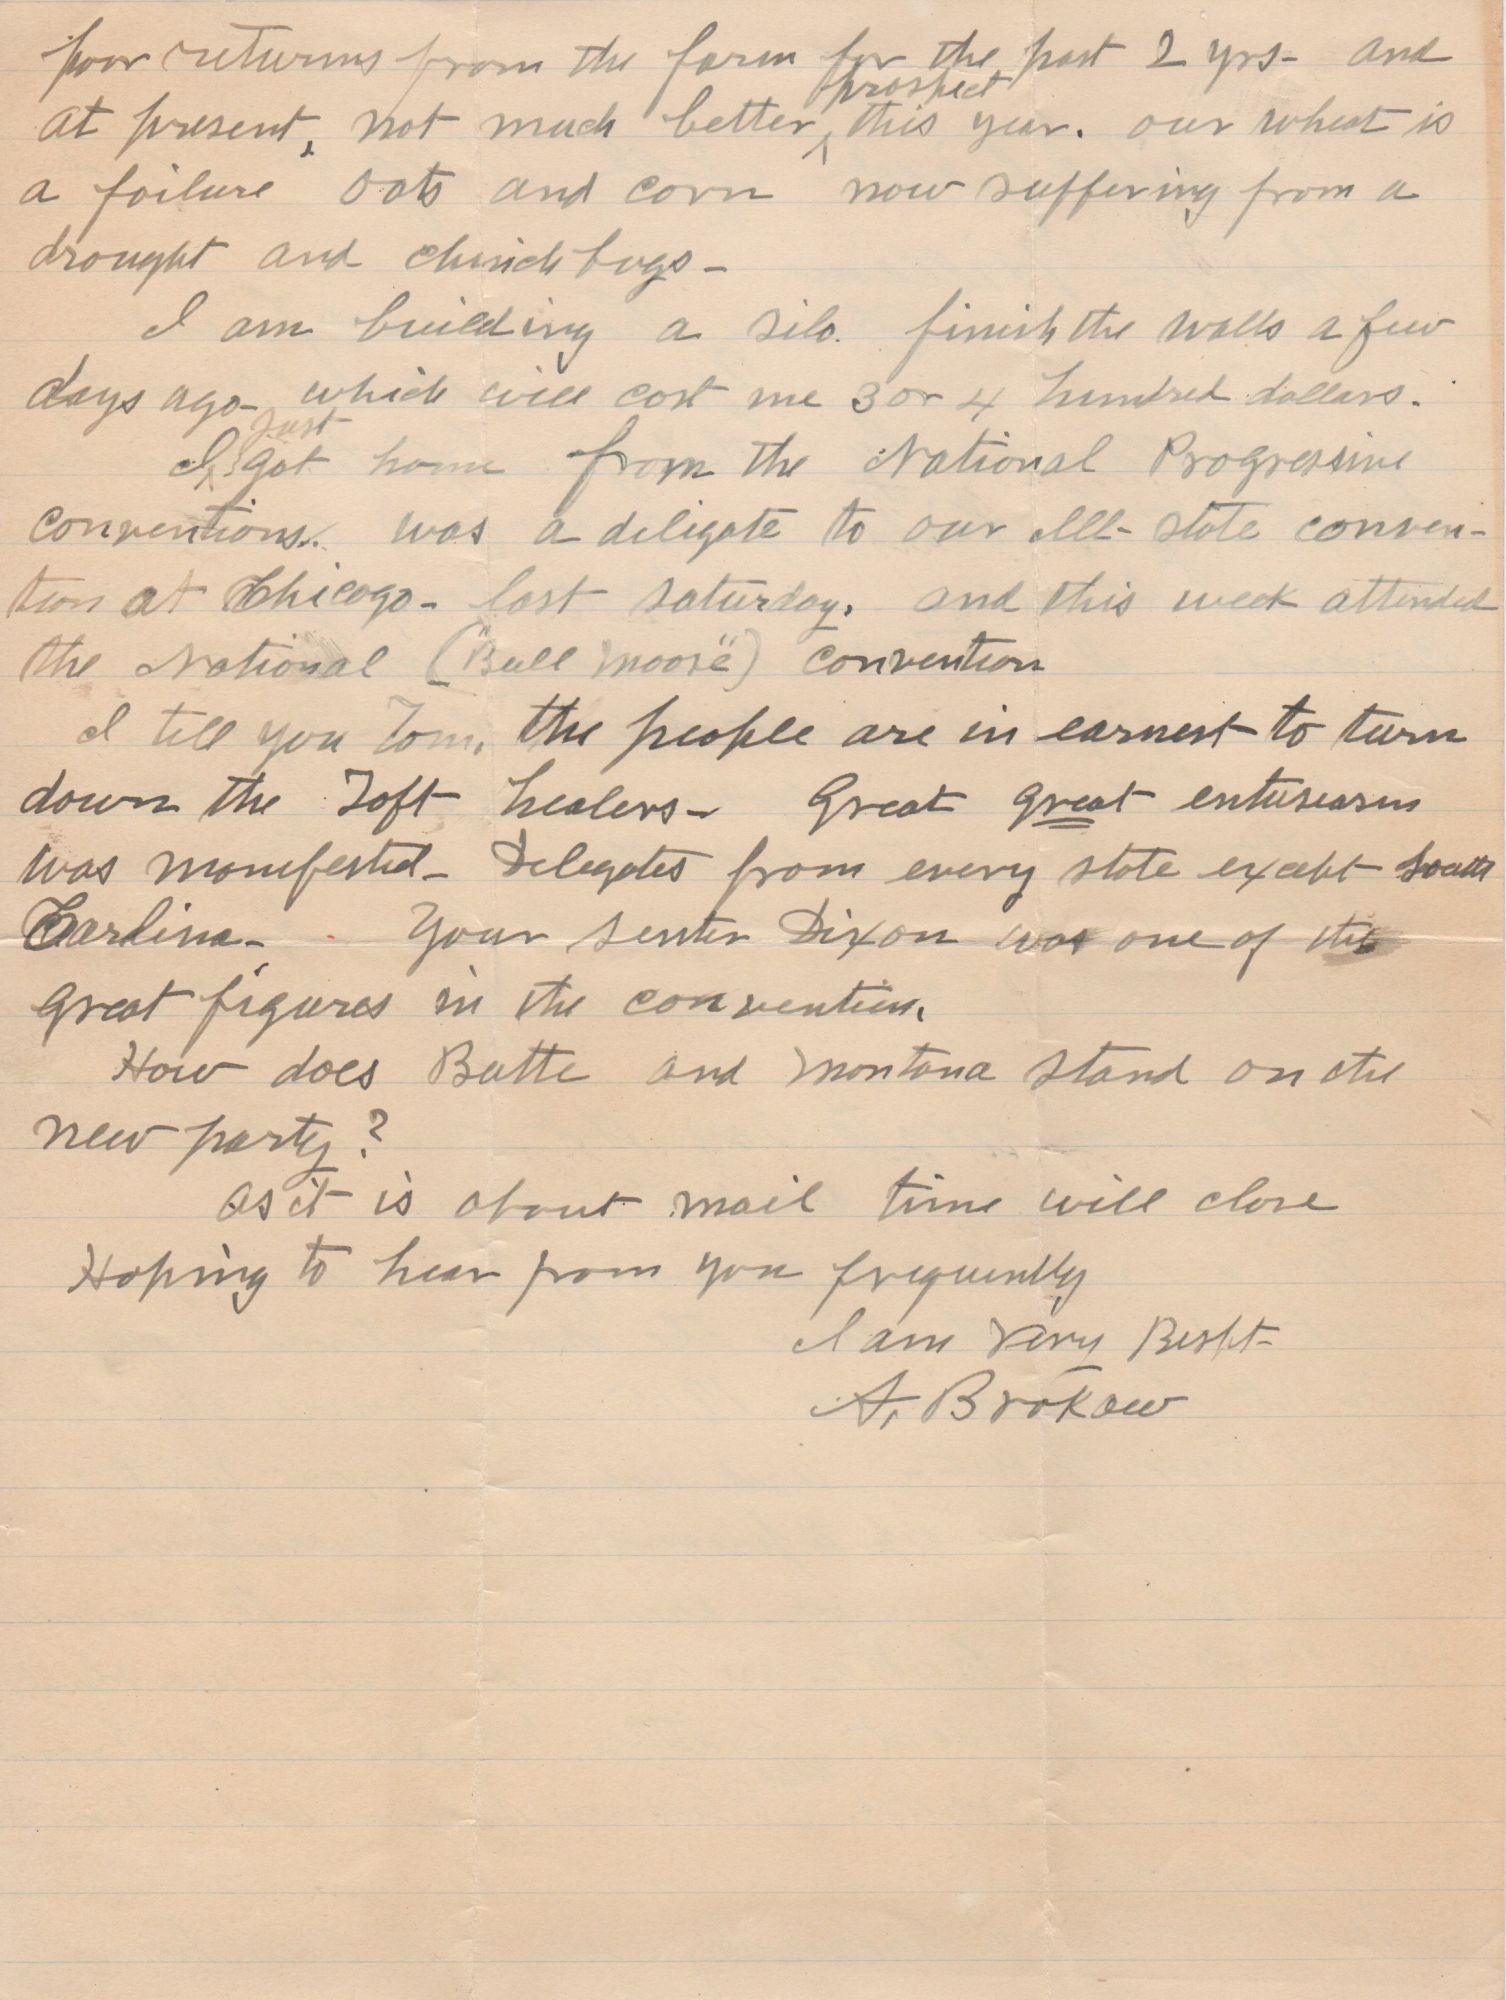 poor returns from the farm for the past 2 yrs- and
at present, not much better prospect this year. our wheat is
a failure oats and corn now suffering from a
drought and chinch bugs-
I am building a silo. finish the walls a few
days ago- which will cost me 3 or 4 hundred dollars.
I just got home from the National Progressive
conventions. was a deligate to our Ill- state conven-
tion at Chicago- last saturday. and this week attended
the National ("Bull Moose") convention
I till you Tom, the people are in earnest to turn
down the Taft healers- Great great entuseasm
was manifested- Delegates from every state except South
Carlina- Your senter Dixon was one of the
great figures in the convention.
How does Butte and Montana stand on the
new party?
as it is about mail time will close
Hoping to hear from you frequently
I am Very Respt-
A. Brokaw